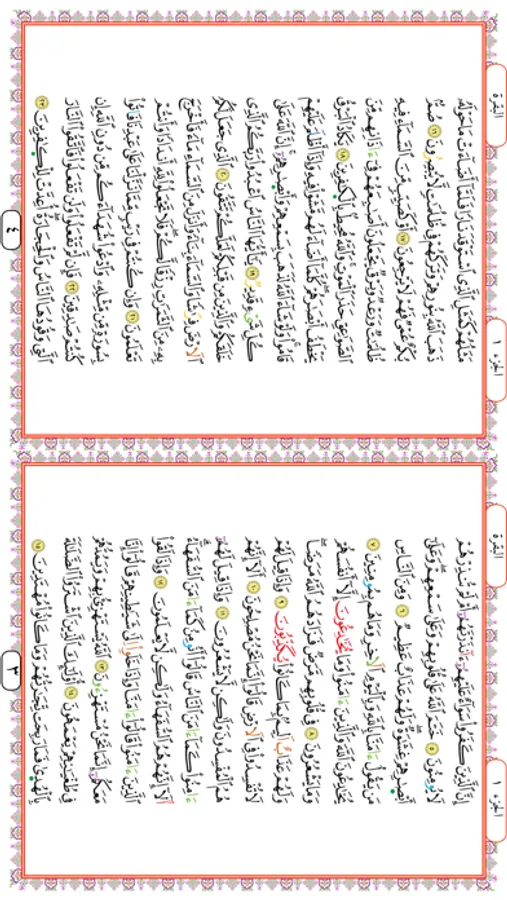 البقرة
الجزء ١
إِنَّ الذِينَ كَفَرُوا سَوَاءٌ عَلَيْهِمْ ءَآنذَرْتَهُمْ أَمْ لَمْ تُنذِرْهُمْ
لَا يُومِنُونَ ٥ خَتَمَ اللَّهُ عَلَىٰ قُلُوبِهِمْ وَعَلَىٰ سَمْعِهِمْ وَعَلَىٰ
أَبْصَٰرِهِمْ غِشَٰوَةٌ وَلَهُمْ عَذَابٌ عَظِيمٌ ٦ وَمِنَ النَّاسِ
مَنْ يَقُولُ ءَامَنَّا بِاللَّهِ وَبِالْيَوْمِ الَاخِرِ وَمَا هُم بِمُومِنِينَ ٧
يُخَٰدِعُونَ اللَّهَ وَالذِينَ ءَامَنُوا وَمَا يُخَٰدِعُونَ إِلَّا أَنفُسَهُمْ
وَمَا يَشْعُرُونَ ٨ فِي قُلُوبِهِم مَّرَضٌ فَزَادَهُمُ اللَّهُ مَرَضًا
وَلَهُمْ عَذَابٌ أَلِيمٌ بِمَا كَانُوا يُكَذِّبُونَ ٩ وَإِذَا قِيلَ لَهُمْ
لَا تُفْسِدُوا فِي الَارْضِ قَالُوا إِنَّمَا نَحْنُ مُصْلِحُونَ ١٠ أَلَا إِنَّهُمْ
هُمُ الْمُفْسِدُونَ وَلَٰكِن لَّا يَشْعُرُونَ ١١ وَإِذَا قِيلَ لَهُمْ
ءَامِنُوا كَمَا ءَامَنَ النَّاسُ قَالُوا أَنُومِنُ كَمَا ءَامَنَ السُّفَهَاءُ
أَلَا إِنَّهُمْ هُمُ السُّفَهَاءُ وَلَٰكِن لَّا يَعْلَمُونَ ١٢ وَإِذَا لَقُوا
الذِينَ ءَامَنُوا قَالُوا ءَامَنَّا وَإِذَا خَلَوِا الَىٰ شَيَٰطِينِهِمْ قَالُوا إِنَّا
مَعَكُمْ إِنَّمَا نَحْنُ مُسْتَهْزِءُونَ ١٣ اللَّهُ يَسْتَهْزِئُ بِهِمْ وَيَمُدُّهُمْ
فِي طُغْيَٰنِهِمْ يَعْمَهُونَ ١٤ أُولَٰئِكَ الذِينَ اشْتَرَوُا الضَّلَٰلَةَ
بِالْهُدَىٰ فَمَا رَبِحَت تِّجَٰرَتُهُمْ وَمَا كَانُوا مُهْتَدِينَ ١٥
٣
البقرة
الجزء ١
مَثَلُهُمْ كَمَثَلِ الذِي اسْتَوْقَدَ نَارًا فَلَمَّا أَضَاءَتْ مَا حَوْلَهُ
ذَهَبَ اللَّهُ بِنُورِهِمْ وَتَرَكَهُمْ فِي ظُلُمَٰتٍ لَّا يُبْصِرُونَ ١٦ صُمٌّ
بُكْمٌ عُمْيٌ فَهُمْ لَا يَرْجِعُونَ ١٧ أَوْ كَصَيِّبٍ مِّنَ السَّمَاءِ فِيهِ
ظُلُمَٰتٌ وَرَعْدٌ وَبَرْقٌ يَجْعَلُونَ أَصَٰبِعَهُمْ فِي ءَاذَانِهِم مِّنَ
الصَّوَٰعِقِ حَذَرَ الْمَوْتِ وَاللَّهُ مُحِيطٌ بِالْكَٰفِرِينَ ١٨ يَكَادُ الْبَرْقُ
يَخْطَفُ أَبْصَٰرَهُمْ كُلَّمَا أَضَاءَ لَهُم مَّشَوْا فِيهِ وَإِذَا أَظْلَمَ عَلَيْهِمْ
قَامُوا وَلَوْ شَاءَ اللَّهُ لَذَهَبَ بِسَمْعِهِمْ وَأَبْصَٰرِهِمْ إِنَّ اللَّهَ عَلَىٰ
كُلِّ شَيْءٍ قَدِيرٌ ١٩ يَٰأَيُّهَا النَّاسُ اعْبُدُوا رَبَّكُمُ الذِي
خَلَقَكُمْ وَالذِينَ مِن قَبْلِكُمْ لَعَلَّكُمْ تَتَّقُونَ ٢٠ الذِي جَعَلَ لَكُمُ
الَارْضَ فِرَٰشًا وَالسَّمَاءَ بِنَاءً وَأَنزَلَ مِنَ السَّمَاءِ مَاءً فَأَخْرَجَ
بِهِ مِنَ الثَّمَرَٰتِ رِزْقًا لَّكُمْ فَلَا تَجْعَلُوا لِلَّهِ أَندَادًا وَأَنتُمْ
تَعْلَمُونَ ٢١ وَإِن كُنتُمْ فِي رَيْبٍ مِّمَّا نَزَّلْنَا عَلَىٰ عَبْدِنَا فَاتُوا
بِسُورَةٍ مِّن مِّثْلِهِ وَادْعُوا شُهَدَاءَكُم مِّن دُونِ اللَّهِ إِن
كُنتُمْ صَٰدِقِينَ ٢٢ فَإِن لَّمْ تَفْعَلُوا وَلَن تَفْعَلُوا فَاتَّقُوا النَّارَ
التِي وَقُودُهَا النَّاسُ وَالْحِجَارَةُ أُعِدَّتْ لِلْكَٰفِرِينَ ٢٣
٤